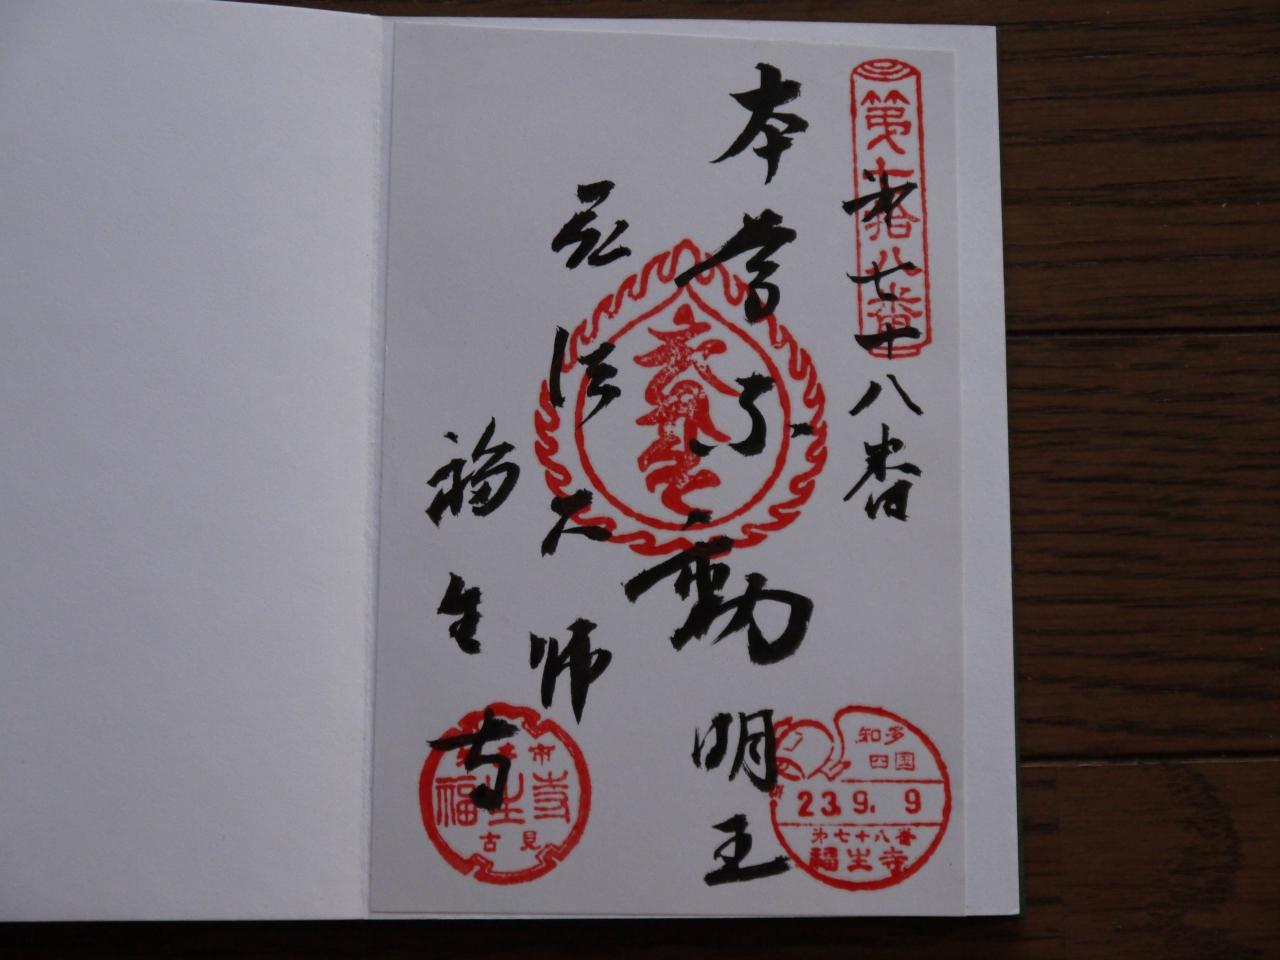 第七拾八番
第七十八番
本尊不動明王
弘法大師
福生寺
市
福生寺
古見
知多
四国
23.9.9
第七十八番
福生寺